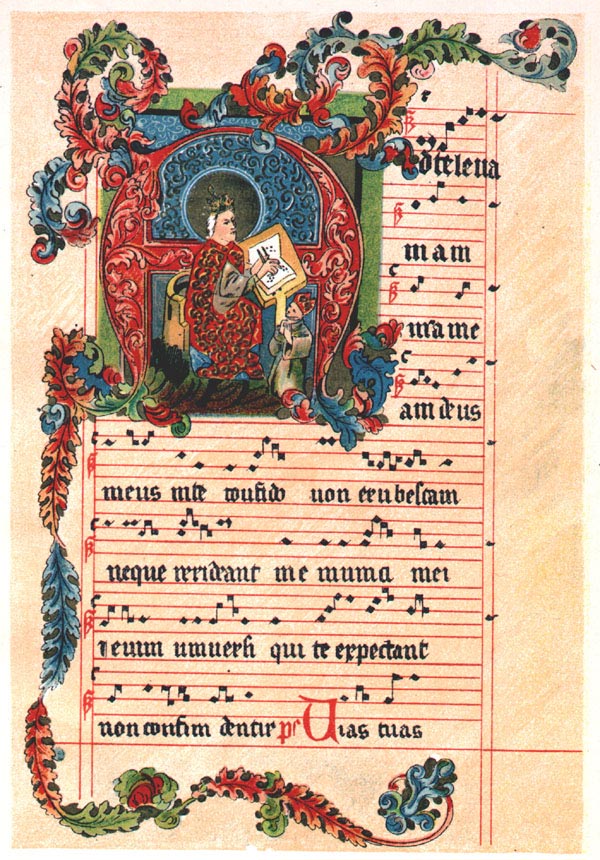 Ad te leua
mam
mrame
am deus
meus in te confido non erubescam
neque irrideant me inimici mei
etenim uniuersi qui te expectant
non confundentur ps Uias tuas